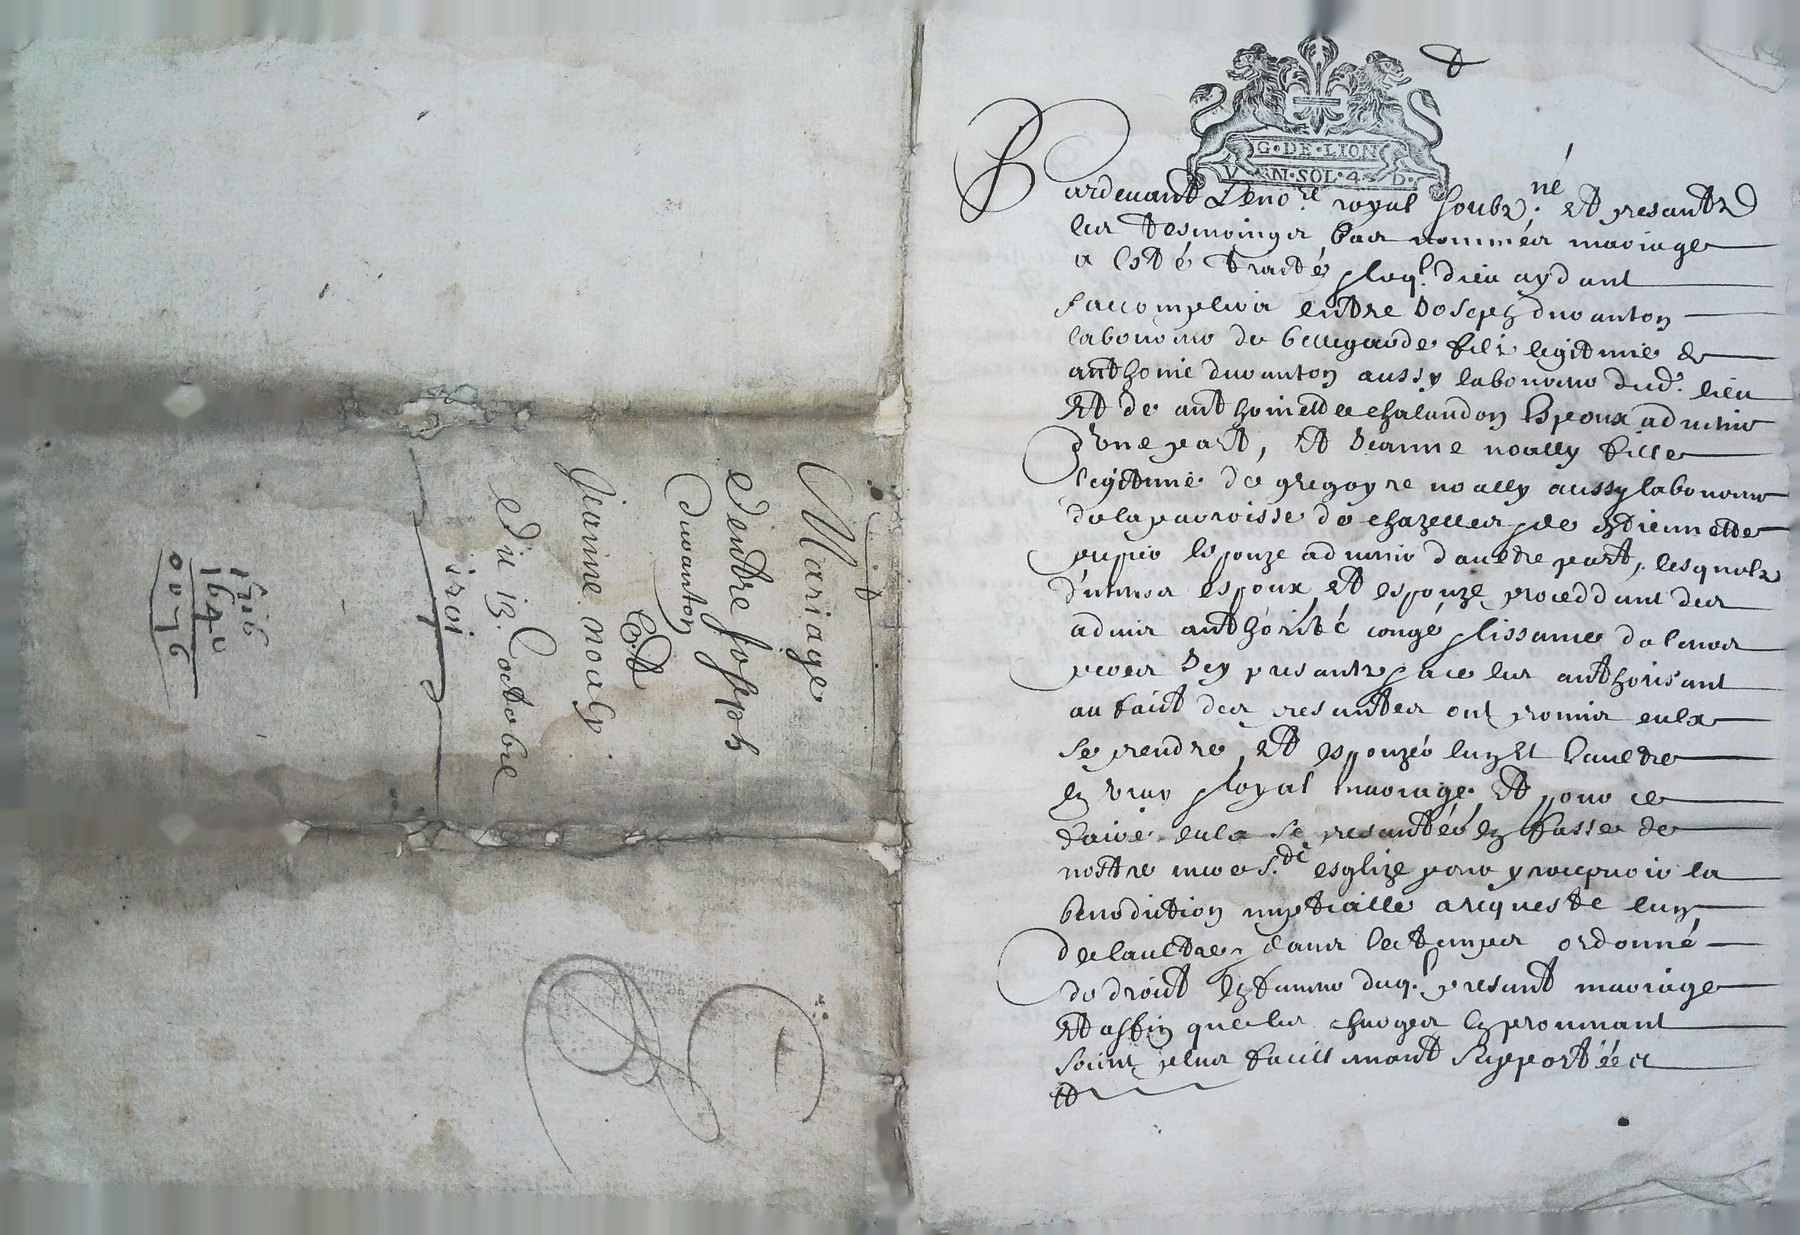 Mariage
d'entre Joseph
duranton
Et
Jeanne noaly
du 13. octobre
1701
1716
164
0076
G·DE·LION
V N·SOL·4 D·
Pardevant Le no.re royal soubz.né Et presantz
les tesmoingz bas nommés mariage
a esté traité, pleq.l dieu aydant
saccomplira entre Joseph duranton
laboureur de bellegarde filz legitime de
anthoine duranton aussy laboureur dud.t lieu
Et de anthoinette chalandon Espoux advenir
d'une part, Et Jeanne noally fille
legitime de gregoyre noally aussy laboureur
de la parroisse de chazelles & de Estiennette
espouze advenir d'aultre part, lesquelz
futurs espoux Et espouze proceddant des
advis authorité congé & lissance de leurs
peres Icy presantz & ace les authorisant
au faict des presantes ont promis eulx
se prendre, Et espouzer lung Et laultre
En vray & loyal mariage Et pour ce
faire eulx se presanter En fasse de
nostre mere s.te esglize pour y recepvoir la
benediction nuptialle a requeste lung
de laultre, dans le temps ordonné
de droict En faveur duq.l presant mariage
Et affin que les charges En prouenant
soient plus facillemant supportées
Et